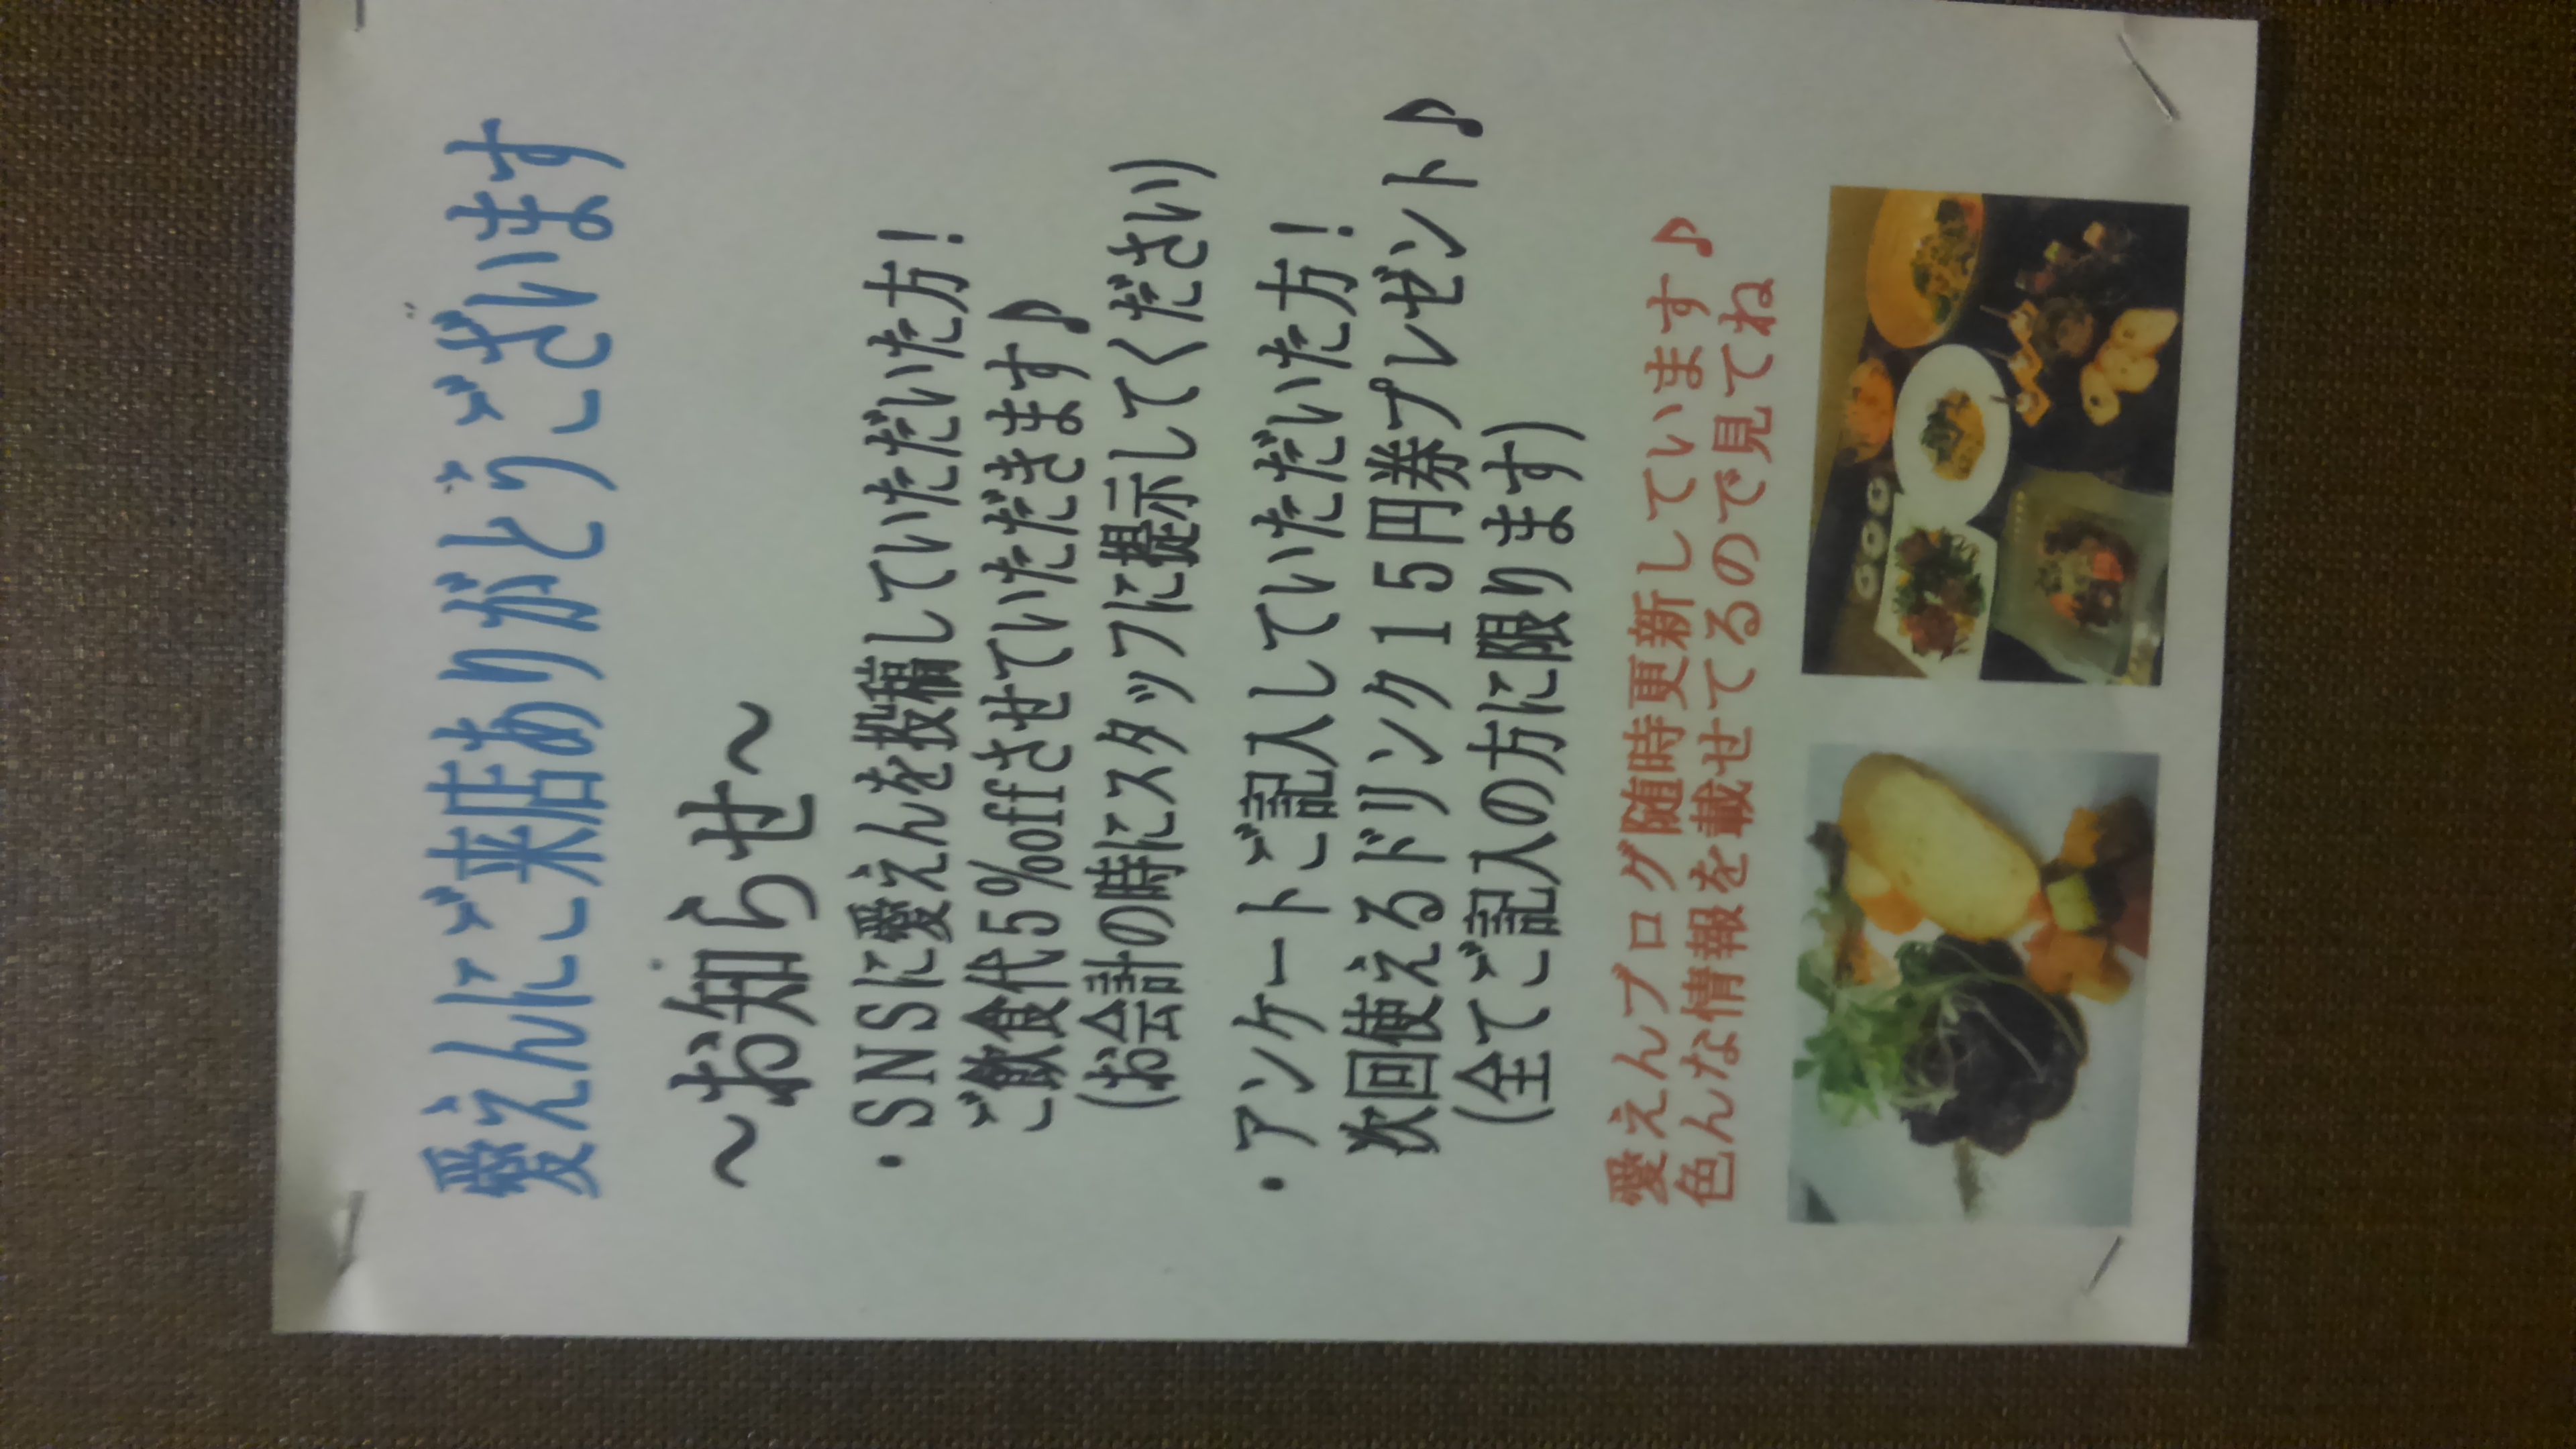 愛えんにご来店ありがとうございます
～お知らせ～
・ＳＮＳに愛えんを投稿していただいた方！
ご飲食代5％offさせていただきます♪
(お会計の時にスタッフに提示してください)
・アンケートご記入していただいた方！
次回使えるドリンク１５円券プレゼント♪
(全てご記入の方に限ります)
愛えんブログ随時更新しています♪
色んな情報を載せてるので見てね